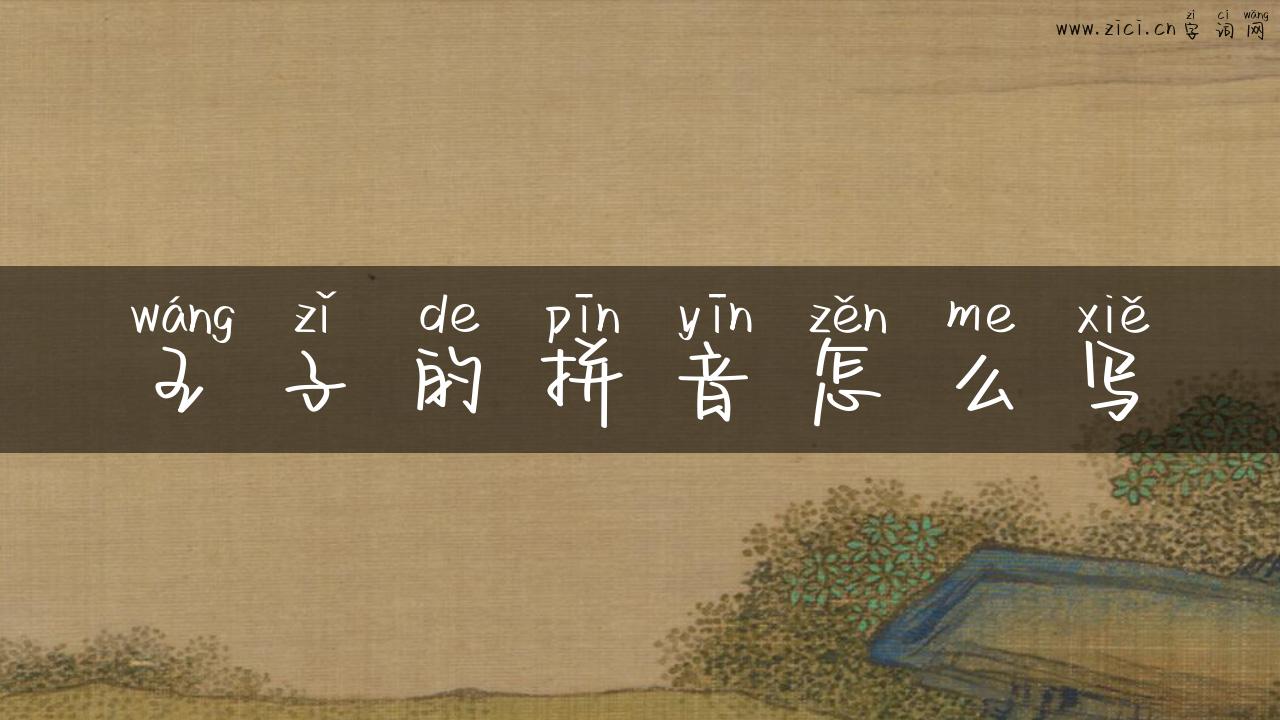 zì cí wǎng
www.zici.cn字词网
wáng zǐ de pīn yīn zěn me xiě
王子的拼音怎么写